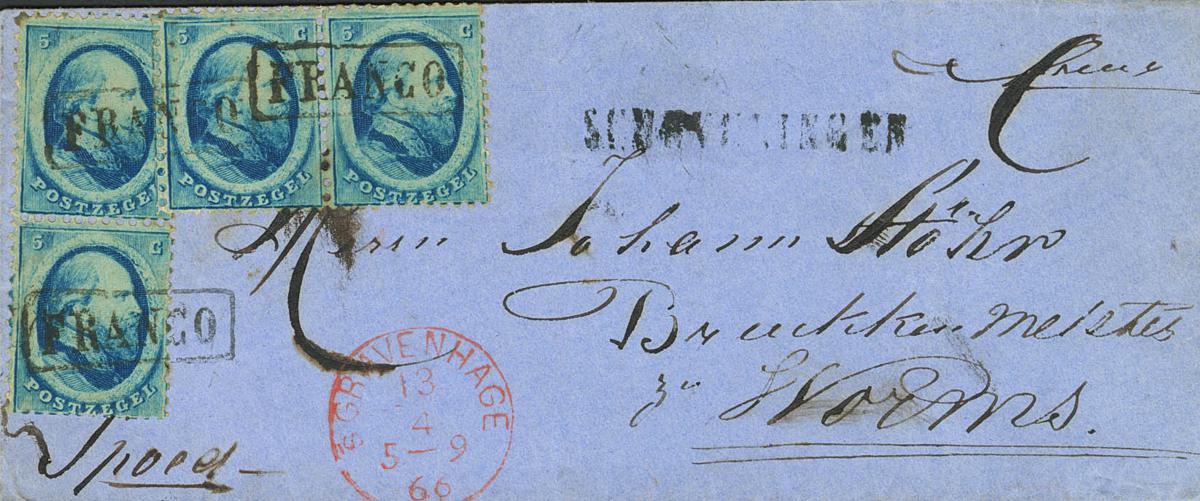 5 C
POSTZEGEL
5 C
POSTZEGEL
5 C
POSTZEGEL
FRANCO
FRANCO
SCHEVENINGEN
franco
Herrn Johann Stöhr
Bruckkenmeister
zu Worms.
5 C
POSTZEGEL
FRANCO
'S GRAVENHAGE
13
4
5-9
66
Spoed